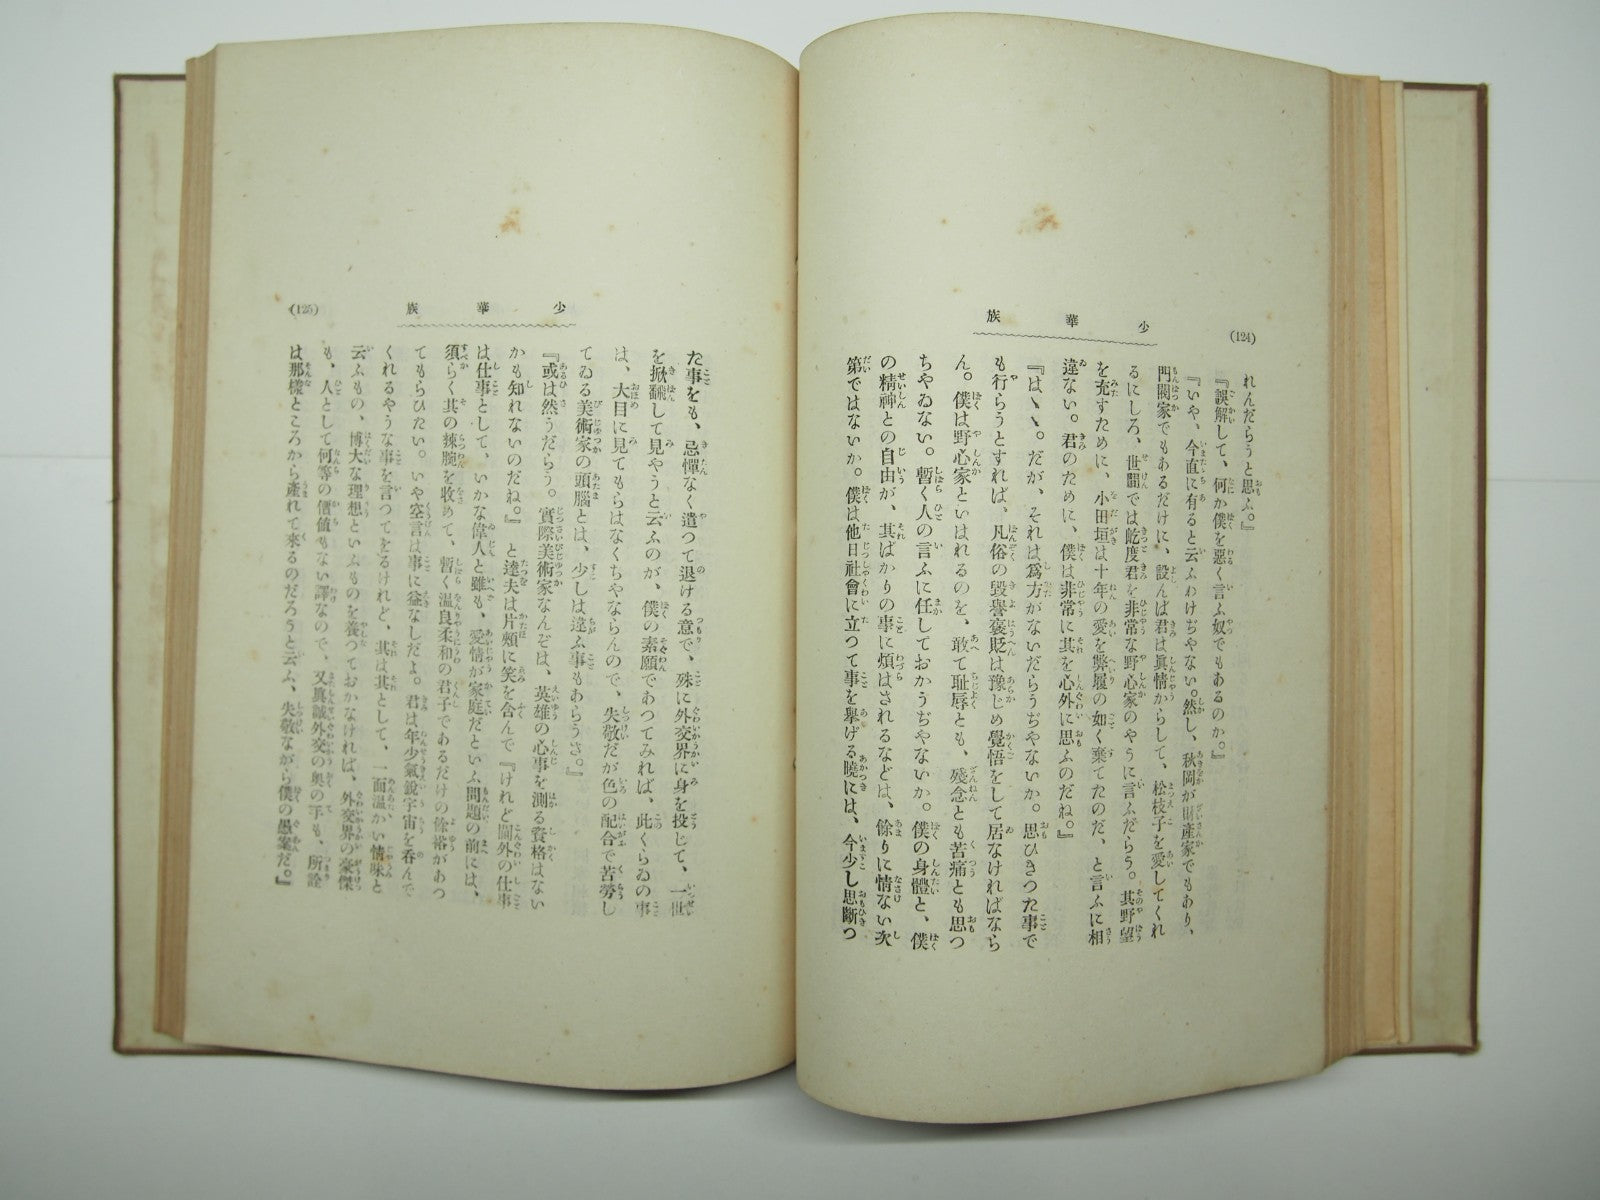 (124)
少華族
れんだらうと思ふ。』
『誤解して、何か僕を惡く言ふ奴でもあるのか。』
『いや、今直に有ると云ふわけぢやない。然し、秋岡が財產家でもあり、
門閥家でもあるだけに、設んば君は眞情からして、松枝子を愛してくれ
るにしろ、世間では屹度君を非常な野心家のやうに言ふだらう。其野望
を充すために、小田垣は十年の愛を弊履の如く棄てたのだ、と言ふに相
違ない。君のために、僕は非常に其を心外に思ふのだね。』
『はゝゝ。だが、それは爲方がないだらうぢやないか。思ひきつた事で
も行らうとすれば、凡俗の毀譽褒貶は豫じめ覺悟をして居なければなら
ん。僕は野心家といはれるのを、敢て耻辱とも、殘念とも苦痛とも思つ
ちやゐない。暫く人の言ふに任しておかうぢやないか。僕の身體と、僕
の精神との自由が、其ばかりの事に煩はされるなどは、餘りに情ない次
第ではないか。僕は他日社會に立つて事を擧げる曉には、今少し思斷つ
少華族
(125)
た事をも、忌憚なく遣つて退ける意で、殊に外交界に身を投じて、一世
を掀翻して見やうと云ふのが、僕の素願であつてみれば、此くらゐの事
は、大目に見てもらはなくちやならんので、失敬だが色の配合で苦勞し
てゐる美術家の頭腦とは、少しは違ふ事もあらうさ。』
『或は然うだらう。實際美術家なんぞは、英雄の心事を測る資格はない
かも知れないのだね。』と達夫は片頰に笑を含んで『けれど閫外の仕事
は仕事として、いかな偉人と雖も、愛情が家庭だといふ問題の前には、
須らく其の辣腕を收めて、暫く溫良柔和の君子であるだけの餘裕があつ
てもらひたい。いや空言は事に益なしだよ。君は年少氣銳宇宙を呑んで
くれるやうな事を言つてをるけれど、其は其として、一面溫かい情味と
云ふもの、博大な理想といふものを養つておかなければ、外交界の豪傑
も、人として何等の價値もない譯なので、又眞誠外交の奥の手も、所詮
は那樣ところから產れて來るのだろうと云ふ、失敬ながら僕の愚案だ。』